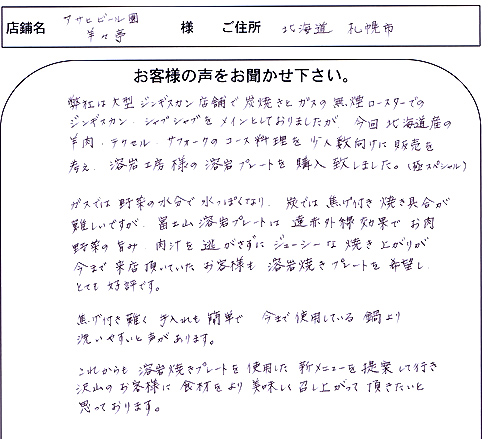 店鋪名 アサヒビール園 羊々亭 様 ご住所 北海道 札幌市
お客様の声をお聞かせ下さい。
弊社は大型ジンギスカン店舗で炭焼きとガスの無煙ロースターでの
ジンギスカン、シャブシャブをメインとしておりましたが、今回北海道産の
羊肉・テクセル・サフォークのコース料理を少人数向けに販売を
考え、溶岩工房様の溶岩プレートを購入致しました。(極スペシャル)
ガスでは野菜の水分で水っぽくなり、炭では焦げ付き焼き具合が
難しいですが、富士山溶岩プレートは遠赤外線効果でお肉
野菜の旨み、肉汁を逃がさずにジューシーな焼き上がりが
今まで来店頂いていたお客様も溶岩焼きプレートを希望し、
とても好評です。
焦げ付き難く手入れも簡単で 今まで使用している鍋より
洗いやすいと声があります。
これからも溶岩焼きプレートを使用した新メニューを提案して行き
沢山のお客様に食材をより美味しく召し上がって頂きたいと
思っております。